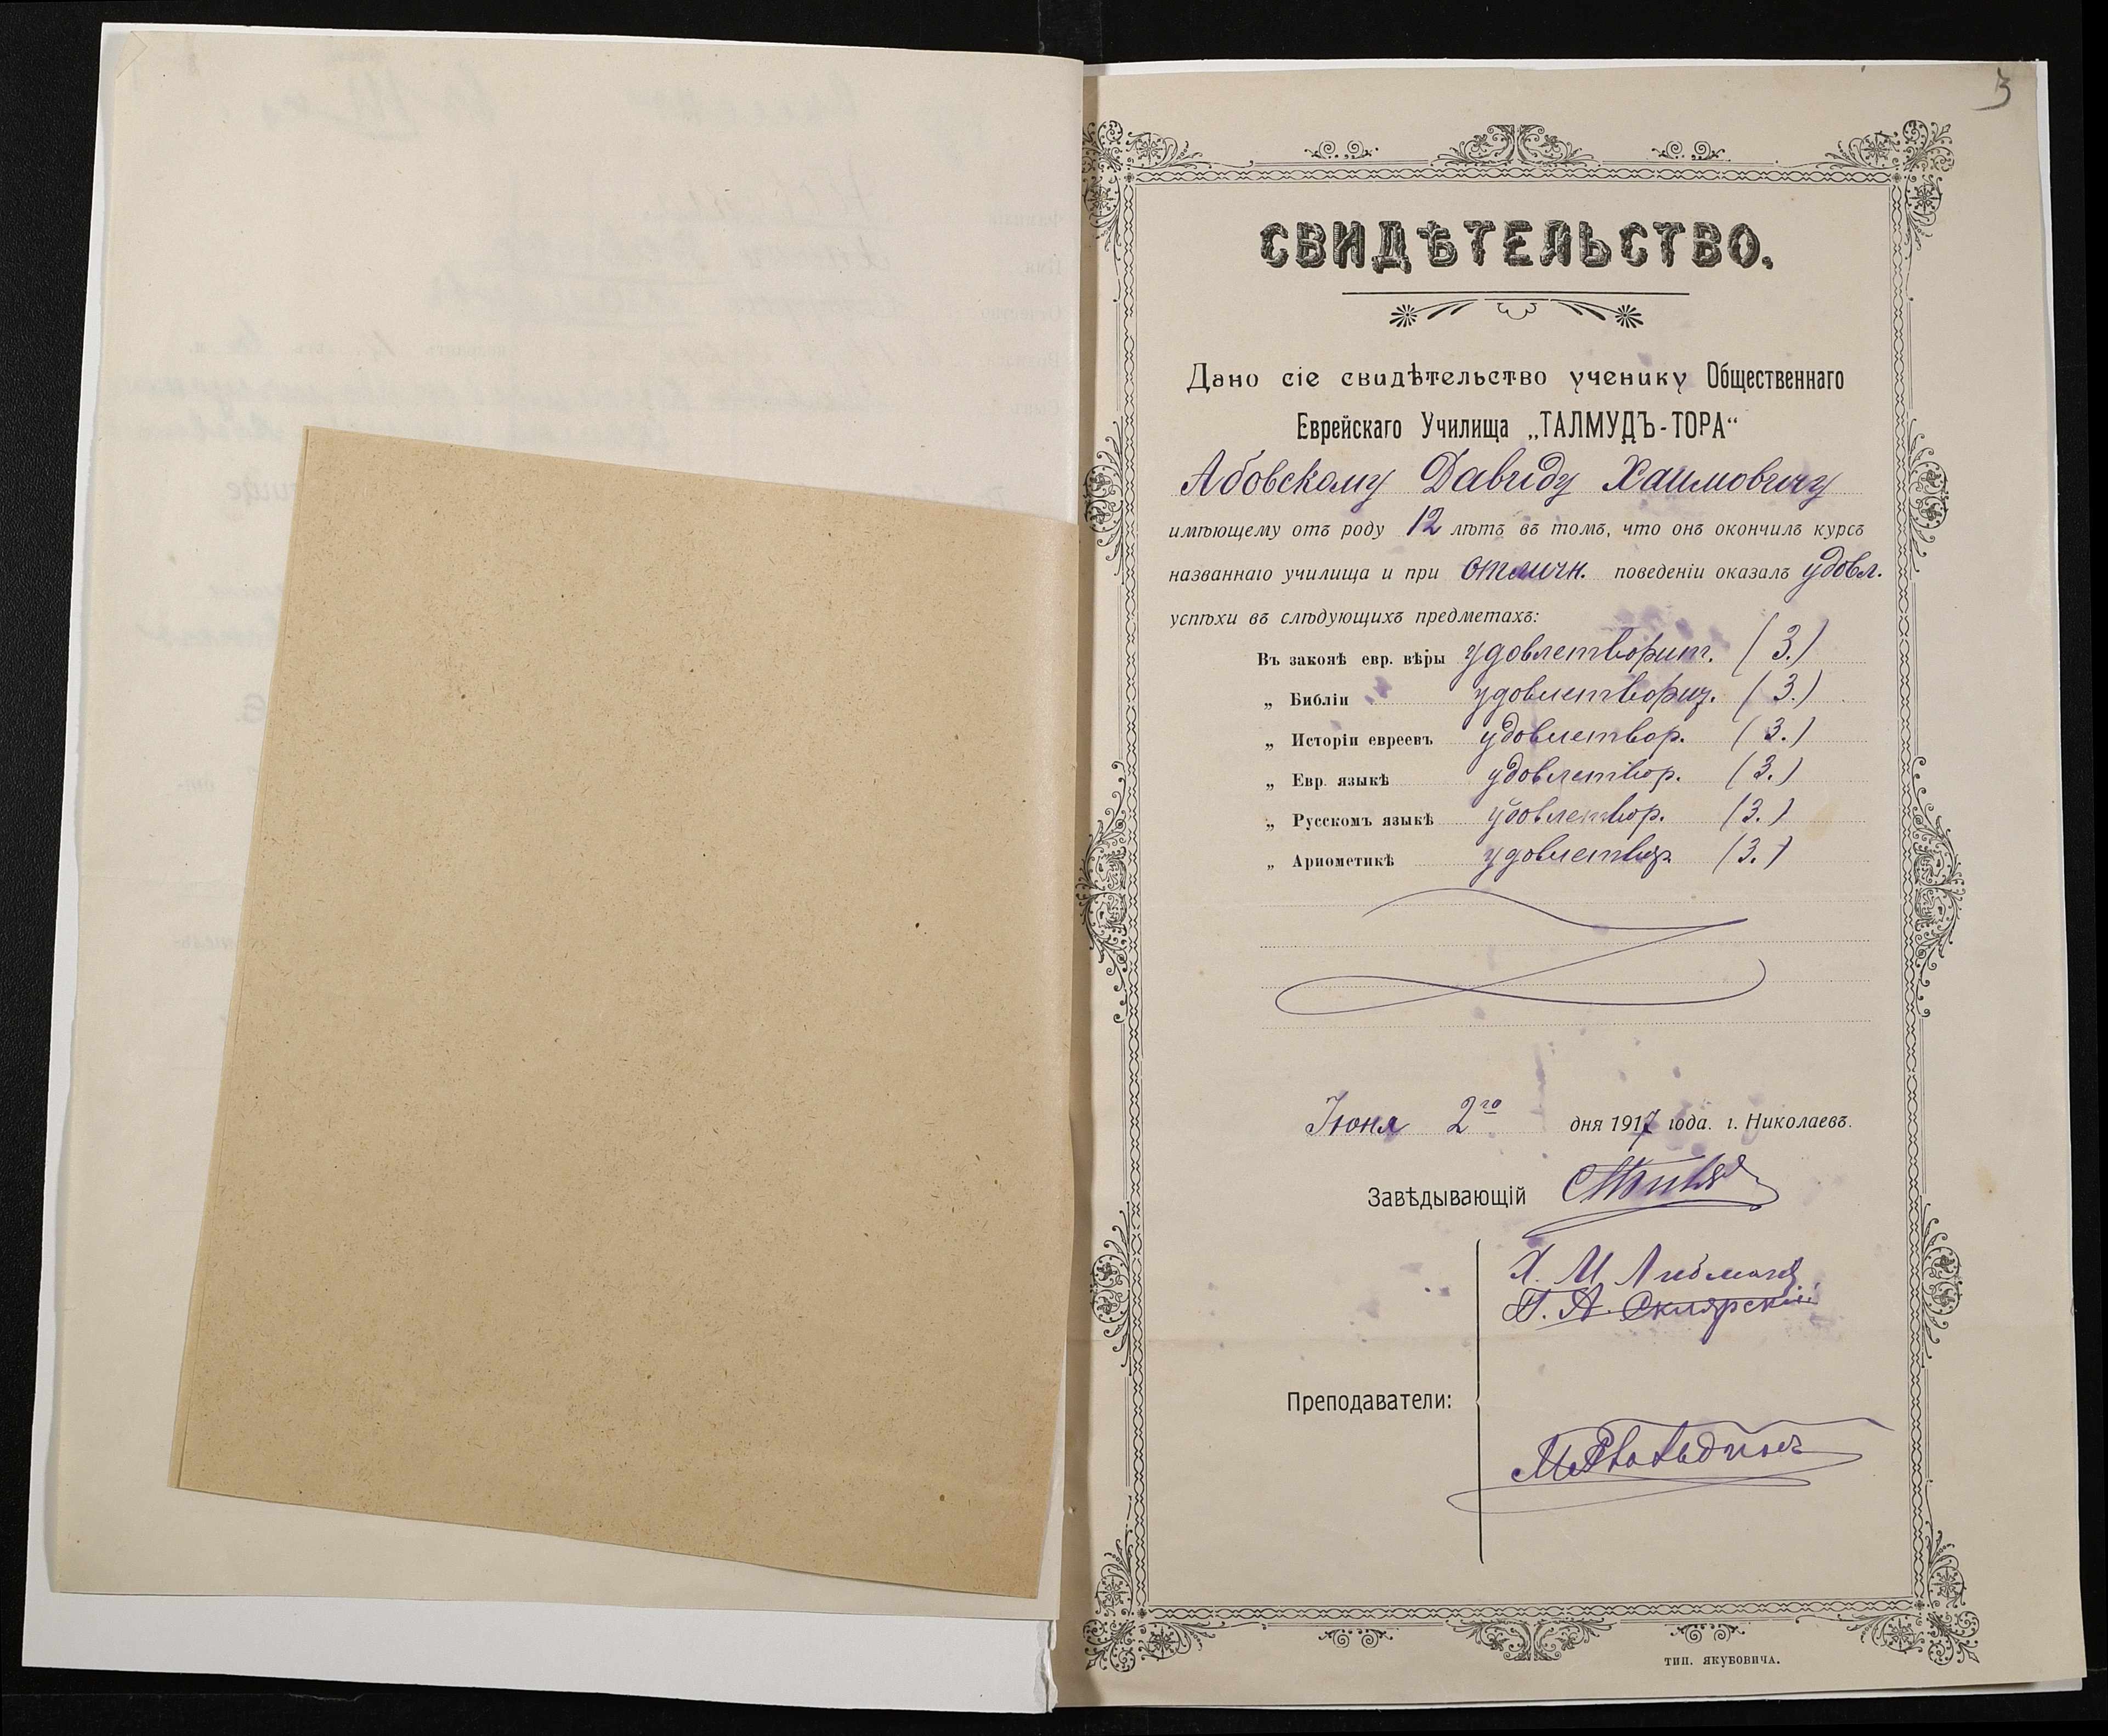 3
СВИДѢТЕЛЬСТВО.
Дано сіе свидѣтельство ученику Общественнаго
Еврейскаго Училища „ТАЛМУДЪ-ТОРА“
Абовскому Давиду Хаимовичу
имѣющему отъ роду 12 лѣтъ въ томъ, что онъ окончилъ курсъ
названнаго училища и при отличн. поведеніи оказалъ удовл.
успѣхи въ слѣдующихъ предметахъ:
Въ законѣ евр. вѣры удовлетворит. (3.)
„ Библіи удовлетвориt. (3.)
„ Исторіи евреевъ удовлетвор. (3.)
„ Евр. языкѣ удовлетвор. (3.)
„ Русскомъ языкѣ удовлетвор. (3.)
„ Ариѳметикѣ удовлетвор. (3.)
Іюня 2го дня 1917 года. г. Николаевъ.
Завѣдывающій
Х. М. Либманъ
Г. А. Склярскій
Преподаватели:
ТИП. ЯКУБОВИЧА.